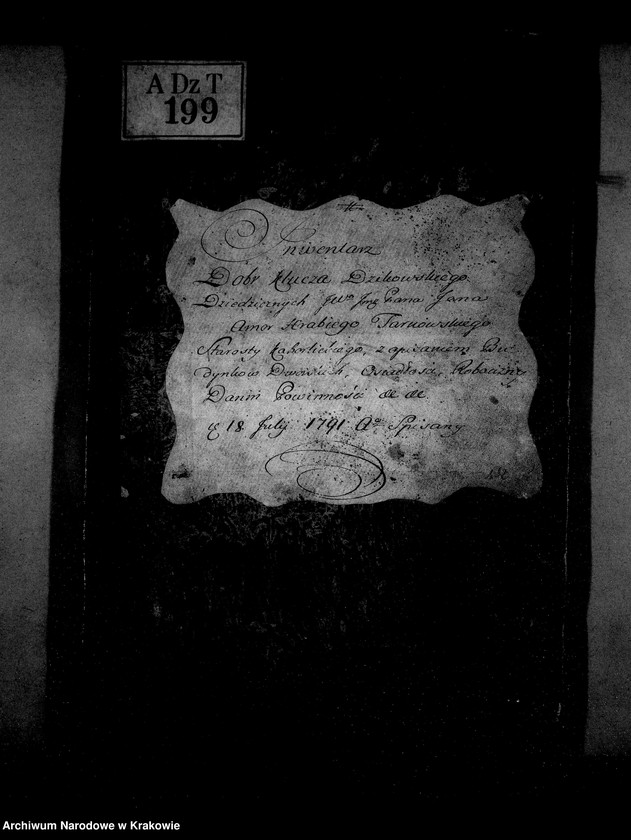 A Dz T
199
Inwentarz
Dobr Klucza Dzikowskiego
Dziedzicznych JWo Jmę Pana Jana
Amor Hrabiego Tarnowskiego
Starosty Kahorlickiego, z opisaniem Bu
dynkow Dworskich, Osiadłości, Robocizny
Danin Powinność &c &c
18 July 1791 Ao Spisany
Archiwum Narodowe w Krakowie